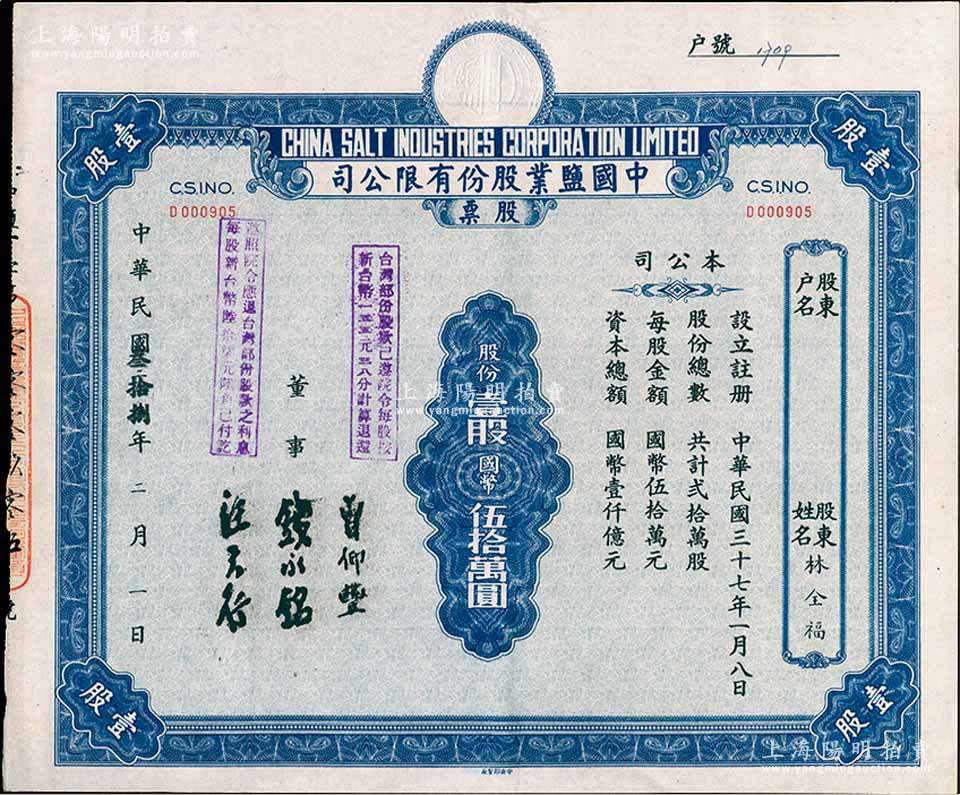 上海陽明拍賣
www.yangmingauction.com
户號 1709
CHINA SALT INDUSTRIES CORPORATION LIMITED
中國鹽業股份有限公司
股票
壹股
壹股
C.S.I.NO.
D000905
C.S.I.NO.
D000905
股東户名
股東姓名 林全福
本公司
設立註册 中華民國三十七年一月八日
股份總數 共計弍拾萬股
每股金額 國幣伍拾萬元
資本總額 國幣壹仟億元
股份壹股國幣伍拾萬圓
台灣部份股款已遵院令每股按
新台幣一五五元三八分計算退還
董事
曾仰豐
錢永銘
遵照院令應退台灣部份股款之利息
每股新台幣陸拾
元陸角已付訖
中華民國叁拾捌年二月一日
壹股
壹股
上海陽明拍賣
www.yangmingauction.com
上海陽明拍賣
www.yangmingauction.com